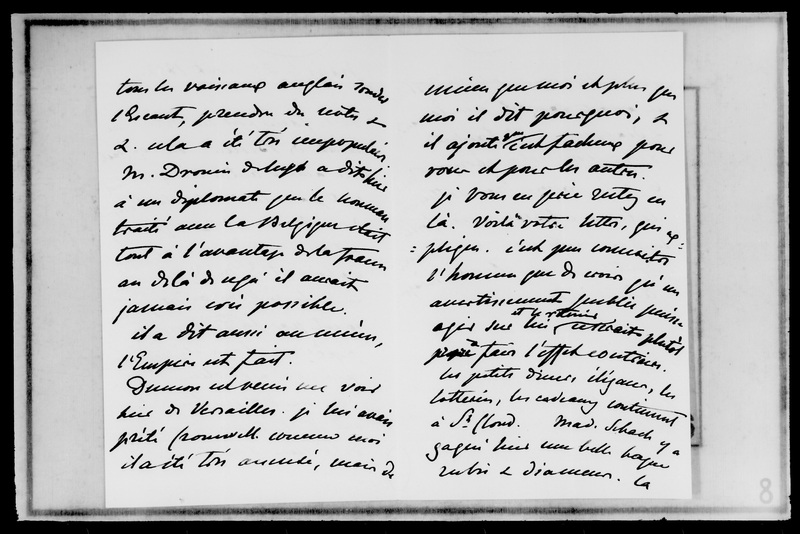 tous les vaisseaux anglais sonder
l'Escaut, prendre des notes &
&. cela a été très impopulaire
M. Drouin de Lhuys a dit hier
à un diplomate que le nouveau
traité avec la Belgique était
tout à l'avantage de la France
au delà de ce qu'il aurait
jamais cru possible.
il a dit aussi au même,
l'Empire est fait.
Dumon est venu me voir
hier de Versailles. je lui avais
prêté Cromwell. comme moi
il a été très amusé, mais
mieux que moi et plus que
moi il dit pourquoi, &
il ajoute que c'est fâcheux pour
vous et pour les autres.
je vous en prie restez en
là. Voilà votre lettre, qui
=plique. c'est peu connaitre
l'homme que de croire qu'un
avertissement public puisse
agir sur lui, et le retenir
plutôt
faire l'effet contraire.
les petits diners élégans, les
lotteries, les cadeaux continuent
à St Cloud. Mad. y a
gagné hier une belle bague
rubis & diamens. la
8